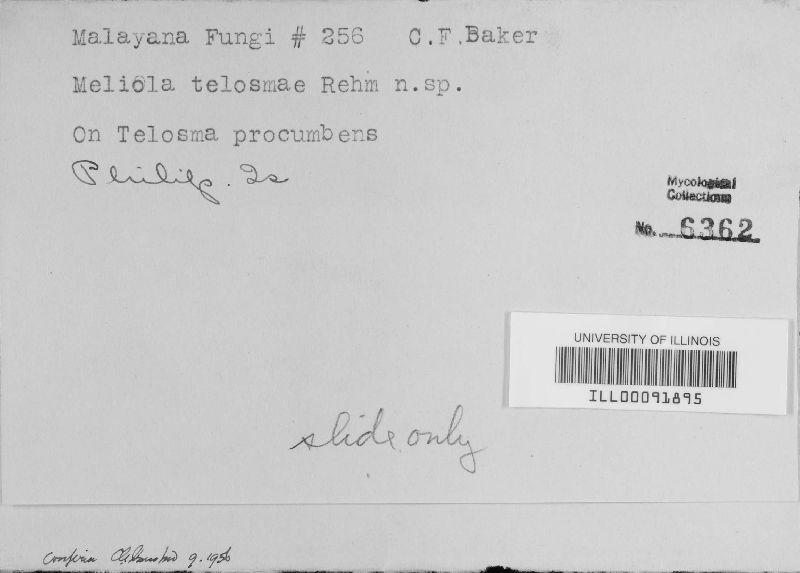 Malayana Fungi # 256 C.F.Baker
Meliola telosmae Rehm n.sp.
On Telosma procumbens
Philip. Is
Mycological
Collections
No. 6362
UNIVERSITY OF ILLINOIS
ILL00091895
slide only
9.1956